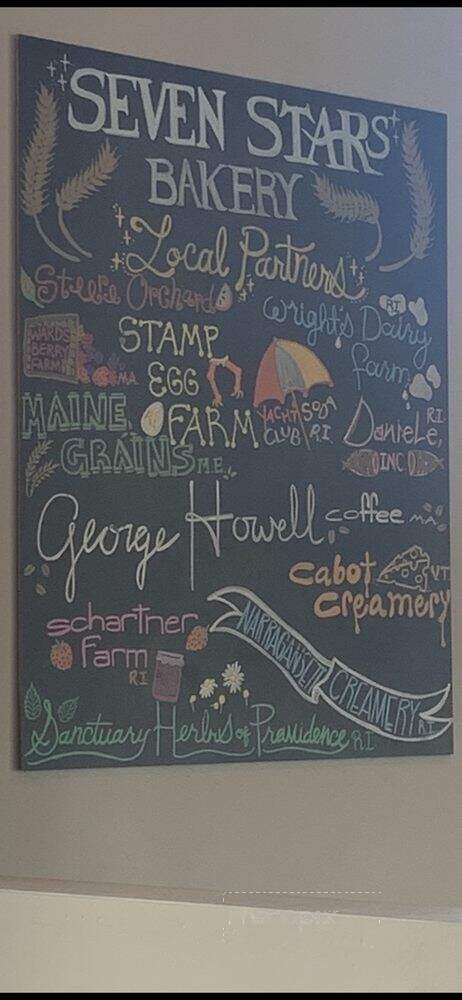 SEVEN STARS
BAKERY
Local Partners
Steere Orchard
Wright's Dairy
Farm
R.I.
WARD'S
BERRY
FARM
MA.
STAMP
EGG
FARM
YACHT SODA
CLUB R.I.
DANIELE,
INC
R.I.
MAINE
GRAINS M.E.
George Howell coffee MA.
cabot VT.
creamery
schartner
farm
R.I.
NARRAGANSETT CREAMERY R.I.
Sanctuary Herbs of Providence R.I